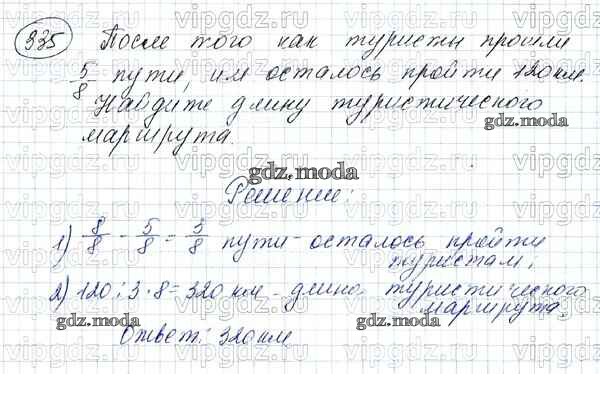 335 После того как туристы прошли
5/8 пути, им осталось пройти 120 км.
Найдите длину туристического
gdz.moda
маршрута.
gdz.moda
Решение:
1) 8/8 - 5/8 = 3/8 пути - осталось пройти
туристам;
2) 120 : 3 · 8 = 320 км - длина туристического
маршрута.
gdz.moda
gdz.moda
Ответ: 320 км
vipgdz.com